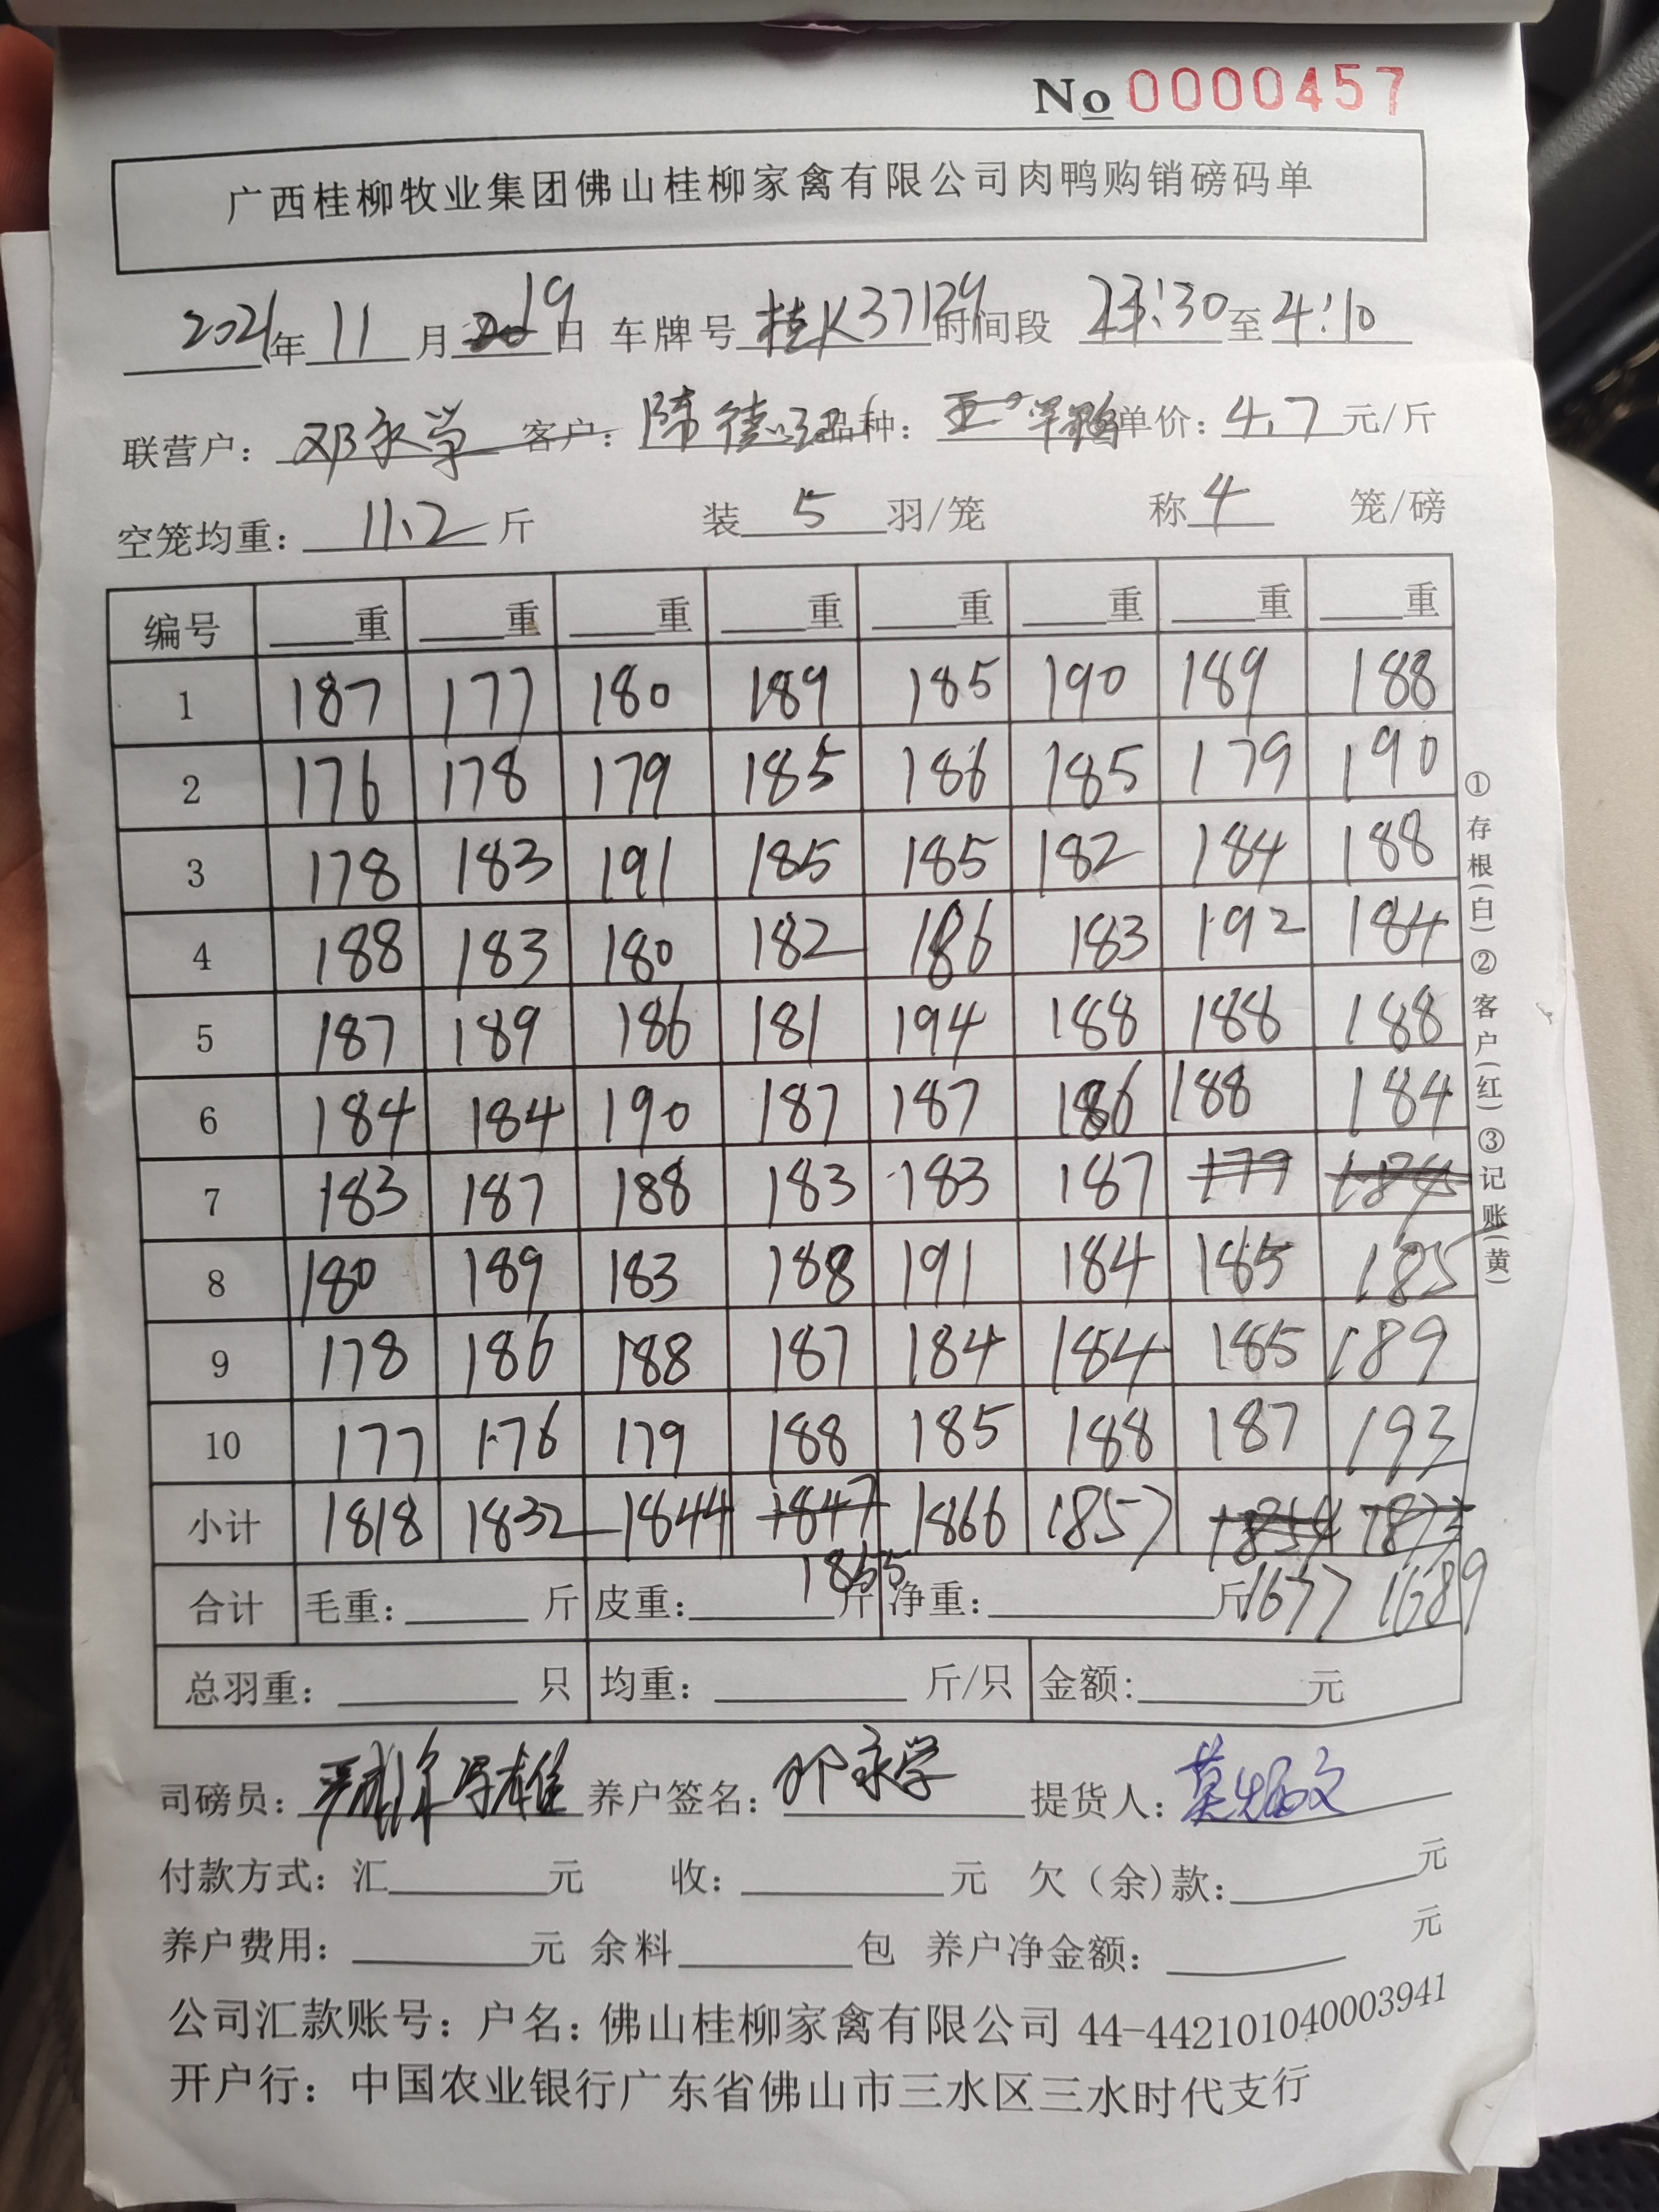 No 0000457
广西桂柳牧业集团佛山桂柳家禽有限公司肉鸭购销磅码单
2021年 11 月 19 日 车牌号 桂K37129 时间段 23:30 至 4:10
联营户: 邓永学 客户: 陈德 品种: 单价: 4.7 元/斤
空笼均重: 11.2 斤 装 5 羽/笼 称 4 笼/磅
编号 重 重 重 重 重 重 重 重
1 187 177 180 189 185 190 189 188
2 176 178 179 185 186 185 179 190
3 178 183 191 185 185 182 184 188
4 188 183 180 182 186 183 192 184
5 187 189 186 181 194 188 188 188
6 184 184 190 187 187 186 188 184
7 183 187 188 183 183 187 177
8 180 189 183 188 191 184 185 185
9 178 186 188 187 184 184 185 189
10 177 176 179 188 185 188 187 193
小计 1818 1832 1844 1847 1866 1857 1854 1873
1855 1677 1689
合计 毛重: 斤 皮重: 斤 净重: 斤
总羽重: 只 均重: 斤/只 金额: 元
司磅员: 养户签名: 邓永学 提货人: 莫炳文
付款方式: 汇 元 收: 元 欠(余)款: 元
养户费用: 元 余料 包 养户净金额: 元
公司汇款账号: 户名: 佛山桂柳家禽有限公司 44-442101040003941
开户行: 中国农业银行广东省佛山市三水区三水时代支行
①存根(白)②客户(红)③记账(黄)